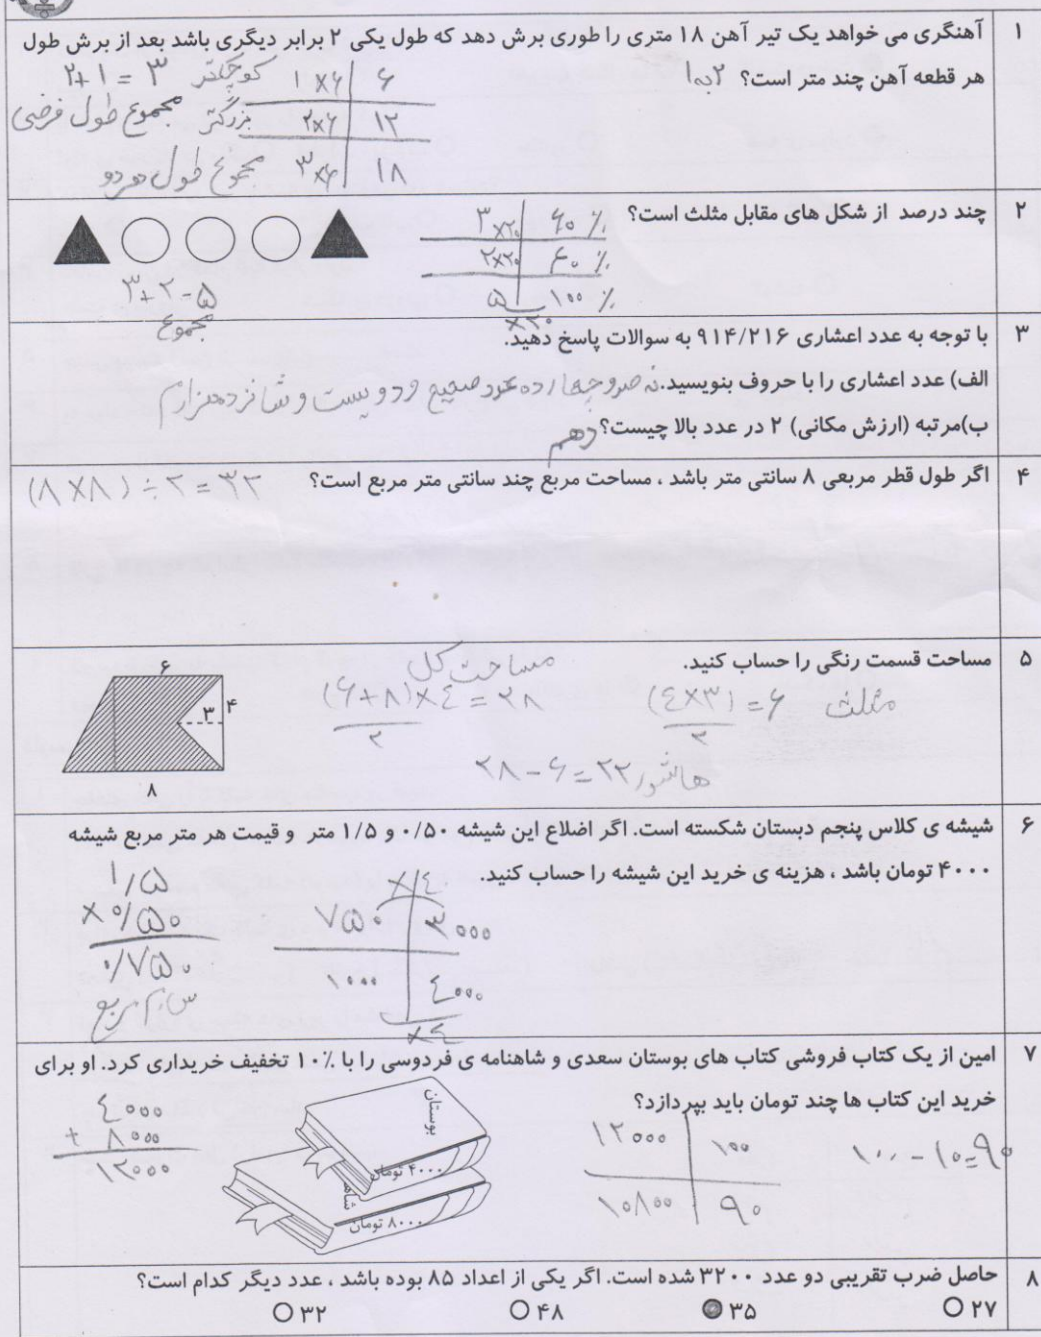 ۱ آهنگری می خواهد یک تیر آهن ۱۸ متری را طوری برش دهد که طول یکی ۲ برابر دیگری باشد بعد از برش طول
هر قطعه آهن چند متر است؟ ۲ به ۱
۲+۱ = ۳ کوچکتر ۱×۶ ۶
مجموع طول فرضی بزرگتر ۲×۶ ۱۲
مجموع طول هر دو ۳×۶ ۱۸
۲ چند درصد از شکل های مقابل مثلث است؟
۳×۲۰ ۶۰٪
۲×۲۰ ۴۰٪
۵ ۱۰۰٪
×۲۰
۳+۲=۵
مجموع
۳ با توجه به عدد اعشاری ۹۱۴/۲۱۶ به سوالات پاسخ دهید.
الف) عدد اعشاری را با حروف بنویسید. نه صد و چهارده عدد صحیح و دویست و شانزده هزارم
ب)مرتبه (ارزش مکانی) ۲ در عدد بالا چیست؟ دهم
۴ اگر طول قطر مربعی ۸ سانتی متر باشد ، مساحت مربع چند سانتی متر مربع است؟ (۸×۸)÷۲=۳۲
۵ مساحت قسمت رنگی را حساب کنید.
مثلث (۴×۳)/۲ = ۶
مساحت کل (۶+۸)×۴/۲ = ۲۸
هاشور ۲۸-۶=۲۲
۶
۳
۴
۸
۶ شیشه ی کلاس پنجم دبستان شکسته است. اگر اضلاع این شیشه ۰/۵۰ و ۱/۵ متر و قیمت هر متر مربع شیشه
۴۰۰۰ تومان باشد ، هزینه ی خرید این شیشه را حساب کنید.
×۴
۷۵۰ ۳۰۰۰
۱۰۰۰ ۴۰۰۰
×۴
۱/۵
×۰/۵۰
۰/۷۵۰
۷ امین از یک کتاب فروشی کتاب های بوستان سعدی و شاهنامه ی فردوسی را با ۱۰٪ تخفیف خریداری کرد. او برای
خرید این کتاب ها چند تومان باید بپردازد؟
۱۰۰-۱۰=۹۰
۱۲۰۰۰ ۱۰۰
۱۰۸۰۰ ۹۰
بوستان
۴۰۰۰ تومان
شاه
۸۰۰۰ تومان
۴۰۰۰
+ ۸۰۰۰
۱۲۰۰۰
۸ حاصل ضرب تقریبی دو عدد ۳۲۰۰ شده است. اگر یکی از اعداد ۸۵ بوده باشد ، عدد دیگر کدام است؟
۲۷ ۳۵ ۴۸ ۳۲